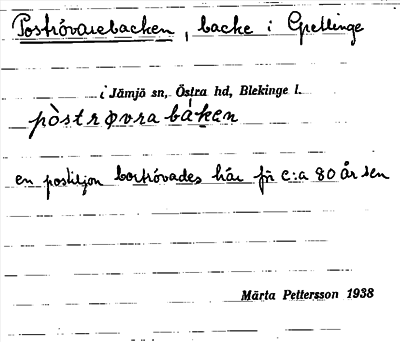 Poströvarebacken, backe i Gretlinge
i Jämjö sn, Östra hd, Blekinge l.
pòstrøvrabáken
en postiljon bortrövades här för c:a 80 år sen
Märta Pettersson 1938